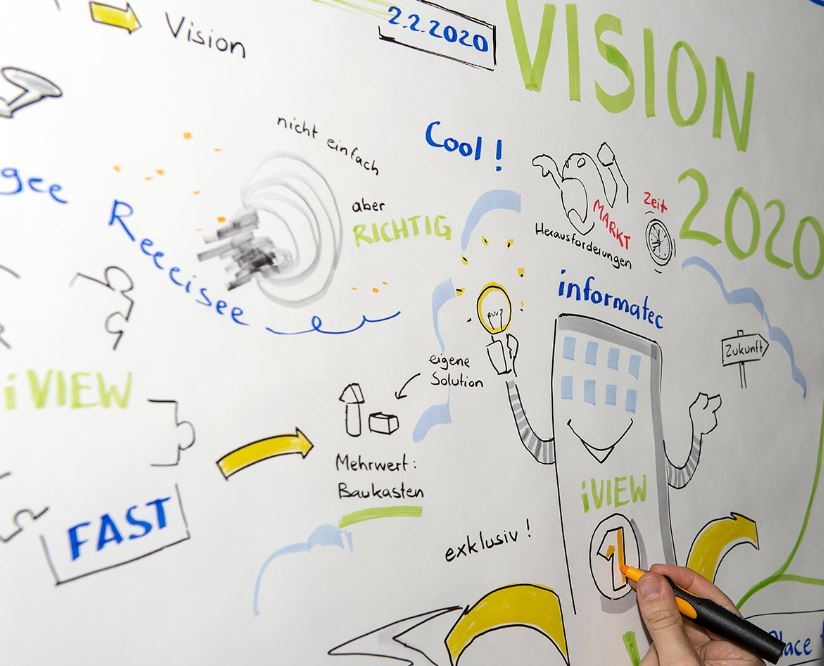 Vision
2.2.2020
VISION
2020
nicht einfach
aber
RICHTIG
Cool !
MARKT
Herausforderungen
Zeit
informatec
Zukunft
eigene
Solution
iVIEW
Mehrwert:
Baukasten
FAST
iVIEW
exklusiv !
1